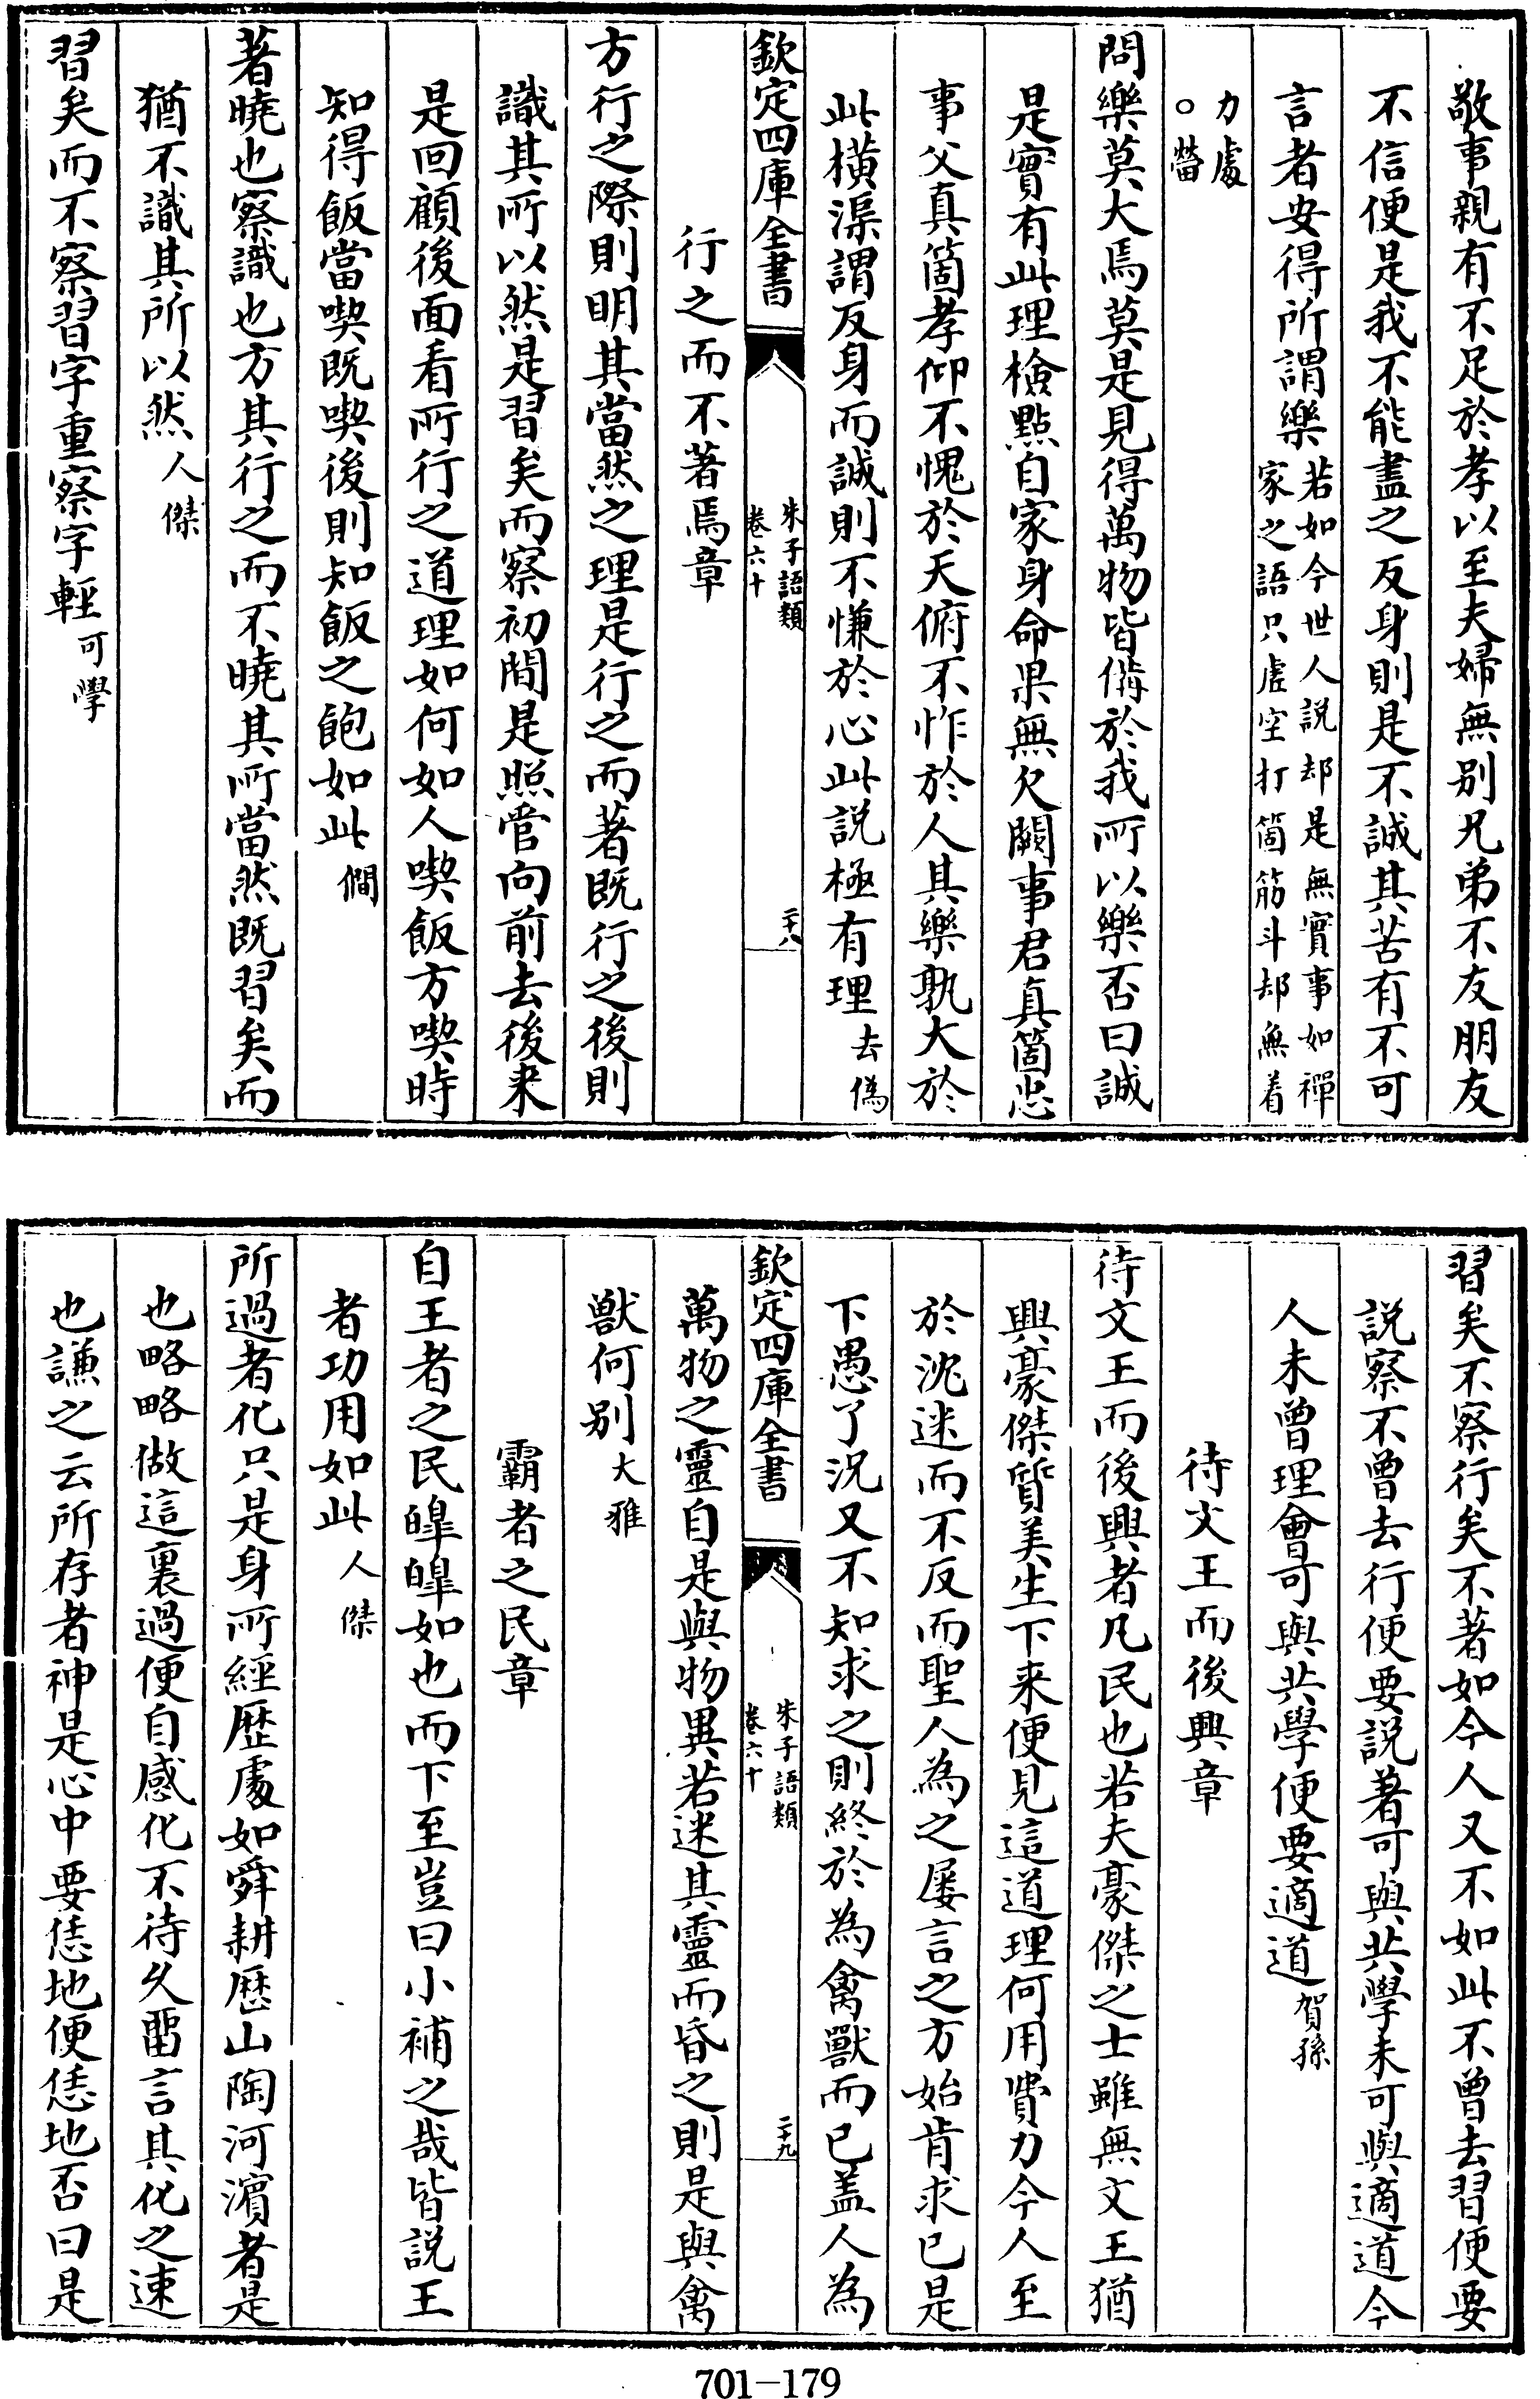 敬事親有不足於孝以至夫婦無別兄弟不友朋友
不信便是我不能盡之反身則是不誠其苦有不可
言者安得所謂樂若如今世人説却是無實事如禪家之語只虛空打箇筋斗却無着
力處○𤲞
問樂莫大焉莫是見得萬物皆備於我所以樂否曰誠
是實有此理檢點自家身命果無欠闕事君真箇忠
事父真箇孝仰不愧於天俯不怍於人其樂孰大於
此橫渠謂反身而誠則不慊於心此説極有理去偽
欽定四庫全書
朱子語類
卷六十
二十八
行之而不著焉章
方行之際則明其當然之理是行之而著既行之後則
識其所以然是習矣而察初間是照管向前去後来
是回顧後面看所行之道理如何如人喫飯方喫時
知得飯當喫既喫後則知飯之飽如此僩
著曉也察識也方其行之而不曉其所當然既習矣而
猶不識其所以然人傑
習矣而不察習字重察字輕可學
習矣不察行矣不著如今人又不如此不曾去習便要
説察不曾去行便要説著可與共學未可與適道今
人未曾理會可與共學便要適道賀孫
待文王而後興章
待文王而後興者凡民也若夫豪傑之士雖無文王猶
興豪傑質美生下来便見這道理何用費力今人至
於沈迷而不反而聖人為之屢言之方始肯求已是
下愚了況又不知求之則終於為禽獸而已盖人為
欽定四庫全書
朱子語類
卷六十
二十九
萬物之靈自是與物異若迷其靈而昏之則是與禽
獸何别大雅
霸者之民章
自王者之民皥皥如也而下至豈曰小補之哉皆説王
者功用如此人傑
所過者化只是身所經歴處如舜耕歴山陶河濵者是
也略略做這裏過便自感化不待久畱言其化之速
也謙之云所存者神是心中要恁地便恁地否曰是
701-179